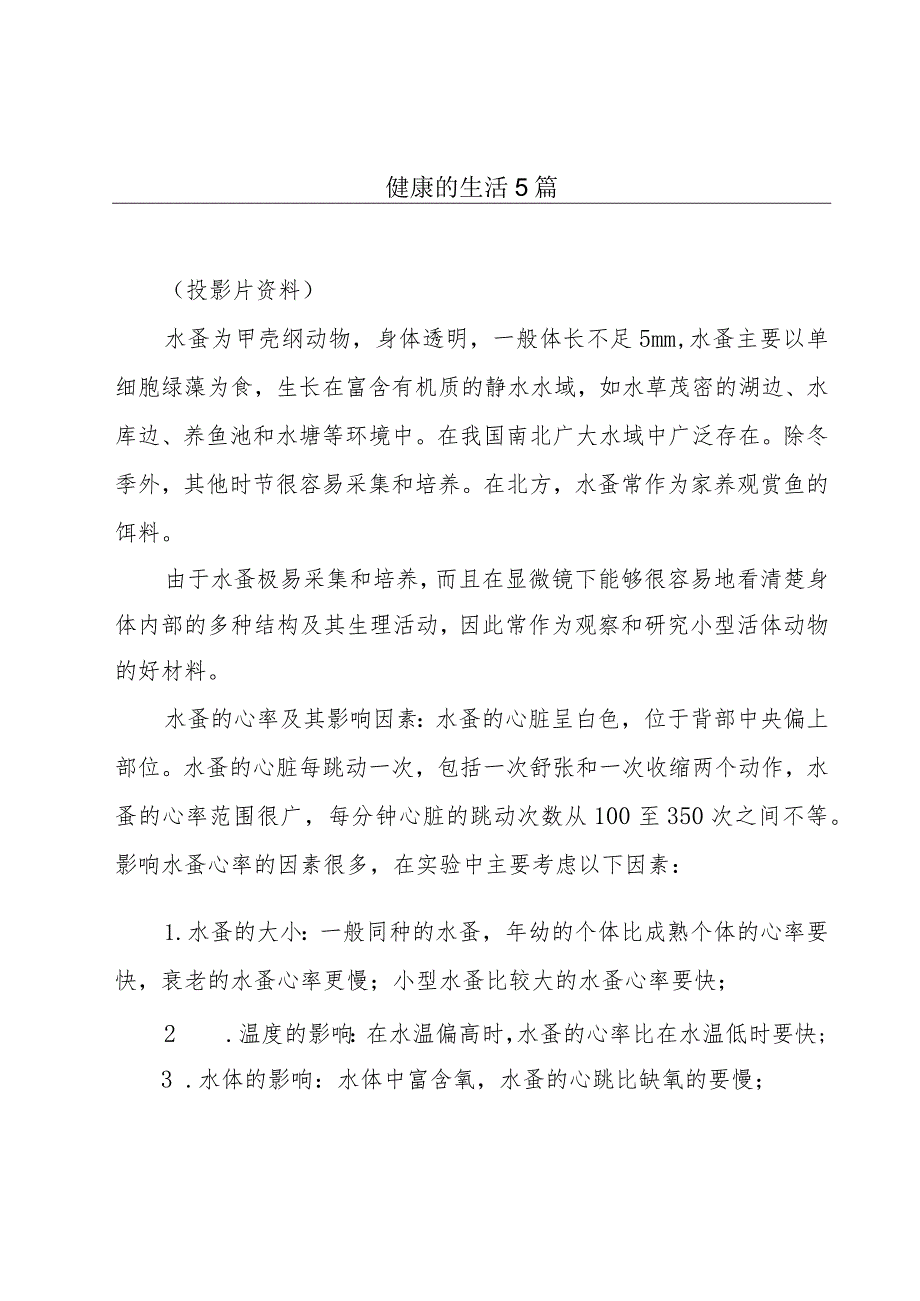 健康的生活5篇
（投影片资料）
水蚤为甲壳纲动物，身体透明，一般体长不足5mm,水蚤主要以单
细胞绿藻为食，生长在富含有机质的静水水域，如水草茂密的湖边、水
库边、养鱼池和水塘等环境中。在我国南北广大水域中广泛存在。除冬
季外，其他时节很容易采集和培养。在北方，水蚤常作为家养观赏鱼的
饵料。
由于水蚤极易采集和培养，而且在显微镜下能够很容易地看清楚身
体内部的多种结构及其生理活动，因此常作为观察和研究小型活体动物
的好材料。
水蚤的心率及其影响因素：水蚤的心脏呈白色，位于背部中央偏上
部位。水蚤的心脏每跳动一次，包括一次舒张和一次收缩两个动作，水
蚤的心率范围很广，每分钟心脏的跳动次数从100至350次之间不等。
影响水蚤心率的因素很多，在实验中主要考虑以下因素：
1.水蚤的大小：一般同种的水蚤，年幼的个体比成熟个体的心率要
快，衰老的水蚤心率更慢；小型水蚤比较大的水蚤心率要快；
2 .温度的影响：在水温偏高时，水蚤的心率比在水温低时要快；
3 .水体的影响：水体中富含氧，水蚤的心跳比缺氧的要慢；